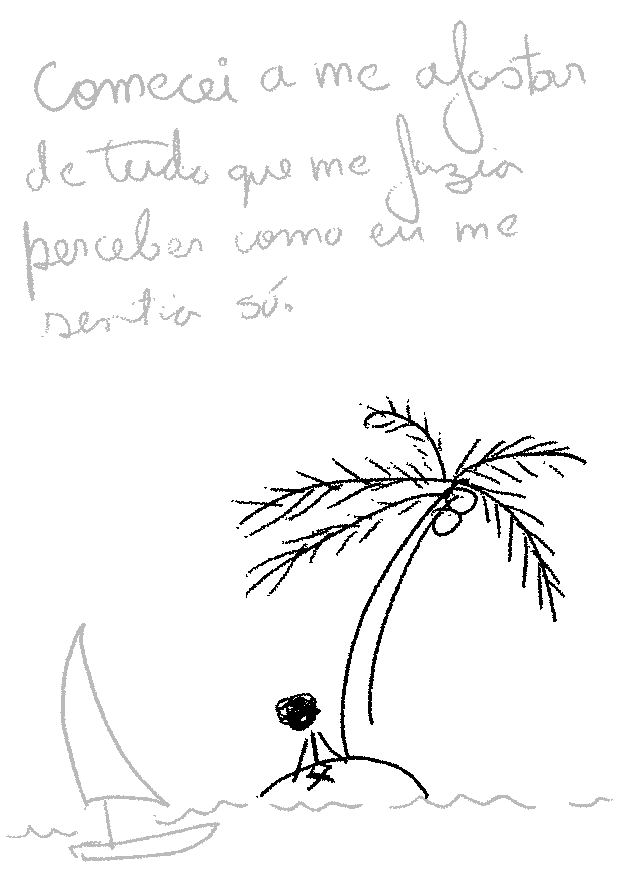 Comecei a me afastar
de tudo que me fazia
perceber como eu me
sentia só.